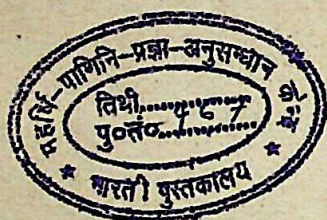 महर्षि-पाणिनि-प्रज्ञा-अनुसन्धान केन्द्र
तिथी..............
पु०सं०..467
* भारती पुस्तकालय *